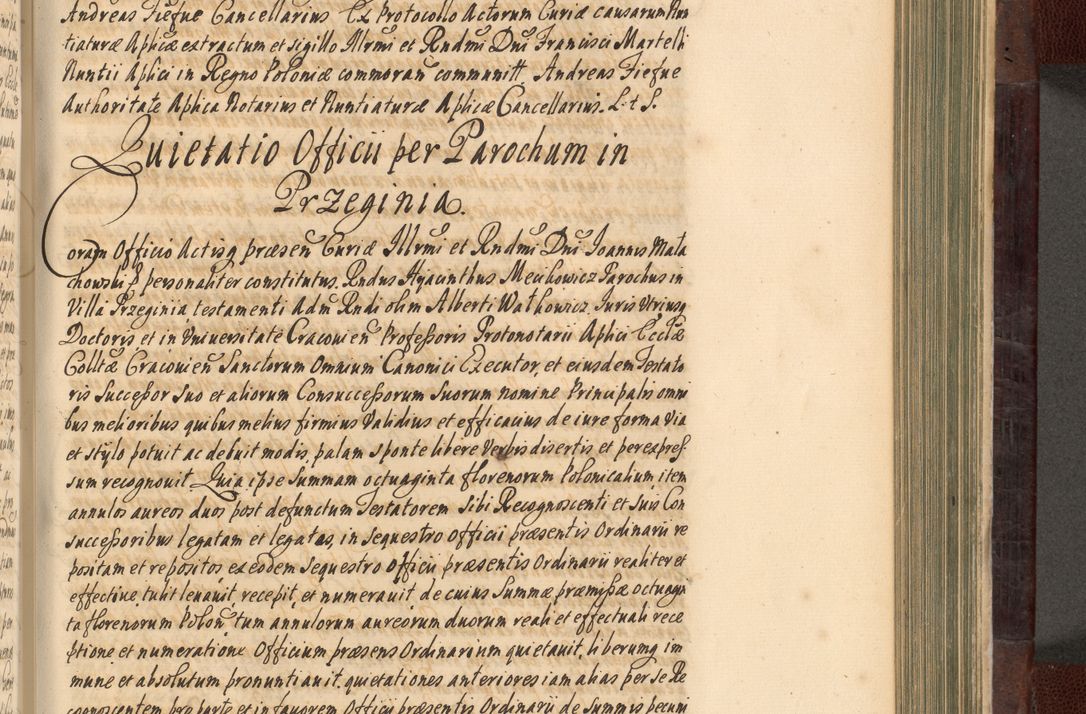 Andreas Fiefue Cancellarius Ex Protocollo Actorum Curiæ causarum Nun
tiaturæ Aplicæ extractum et sigillo Illrmi et Rndmi Dni Francisci Martelli
Nuntii Aplici in Regno Poloniæ commoran communitt. Andreas Fiefue
Authoritate Aplica Notarius et Nuntiaturæ Aplicæ Cancellarius. L. + S.
Quietatio Officii per Parochum in
Przeginia.
Coram Officio Actisq præsen Curiæ Illrmi et Rndmi Dni Joannis Mala
chowski p personaliter constitutus Rndus Hyacinthus Mecikowicz Parochus in
Villa Przeginia testamenti Adm Rndi olim Alberti Wathowicz Juris Utriusq
Doctoris et in Universitate Cracovien Professoris Protonotarii Aplici Ecclæ
Colltæ Cracovien Sanctorum Omnium Canonici Executor, et eiusdem Testato
ris Successor Suo et aliorum Consuccessorum Suorum nomine Principalis omni
bus melioribus quibus melius firmius Validius et efficacius de iure forma via
et stylo potuit ac debuit modis, palam sponte libere Verbis disertis et per expres
sum recognovit. Quia ipse Summam octuaginta florenorum Polonicalium item
annulos aureos duos post defunctum Testatorem Sibi Recognoscenti et Suis Con
successoribus legatam et legatos, in Sequestro officii præsentis Ordinarii re
positam et repositos ex eodem Sequestro officii præsentis Ordinarii realiter et
effective, tulit levavit, recepit, et numeravit, de cuius Summæ præmissæ octuagin
ta florenorum Polon tum annulorum aureorum duorum reali et effectuali rece
ptione et numeratione Officium præsens Ordinarium quietavit, liberumq im
mune et absolutum pronuntiavit, quietationes anteriores iam alias per se Re
cognoscentem pro parte et in favorem Officii præsentis Ordinarii de Summis pecuni